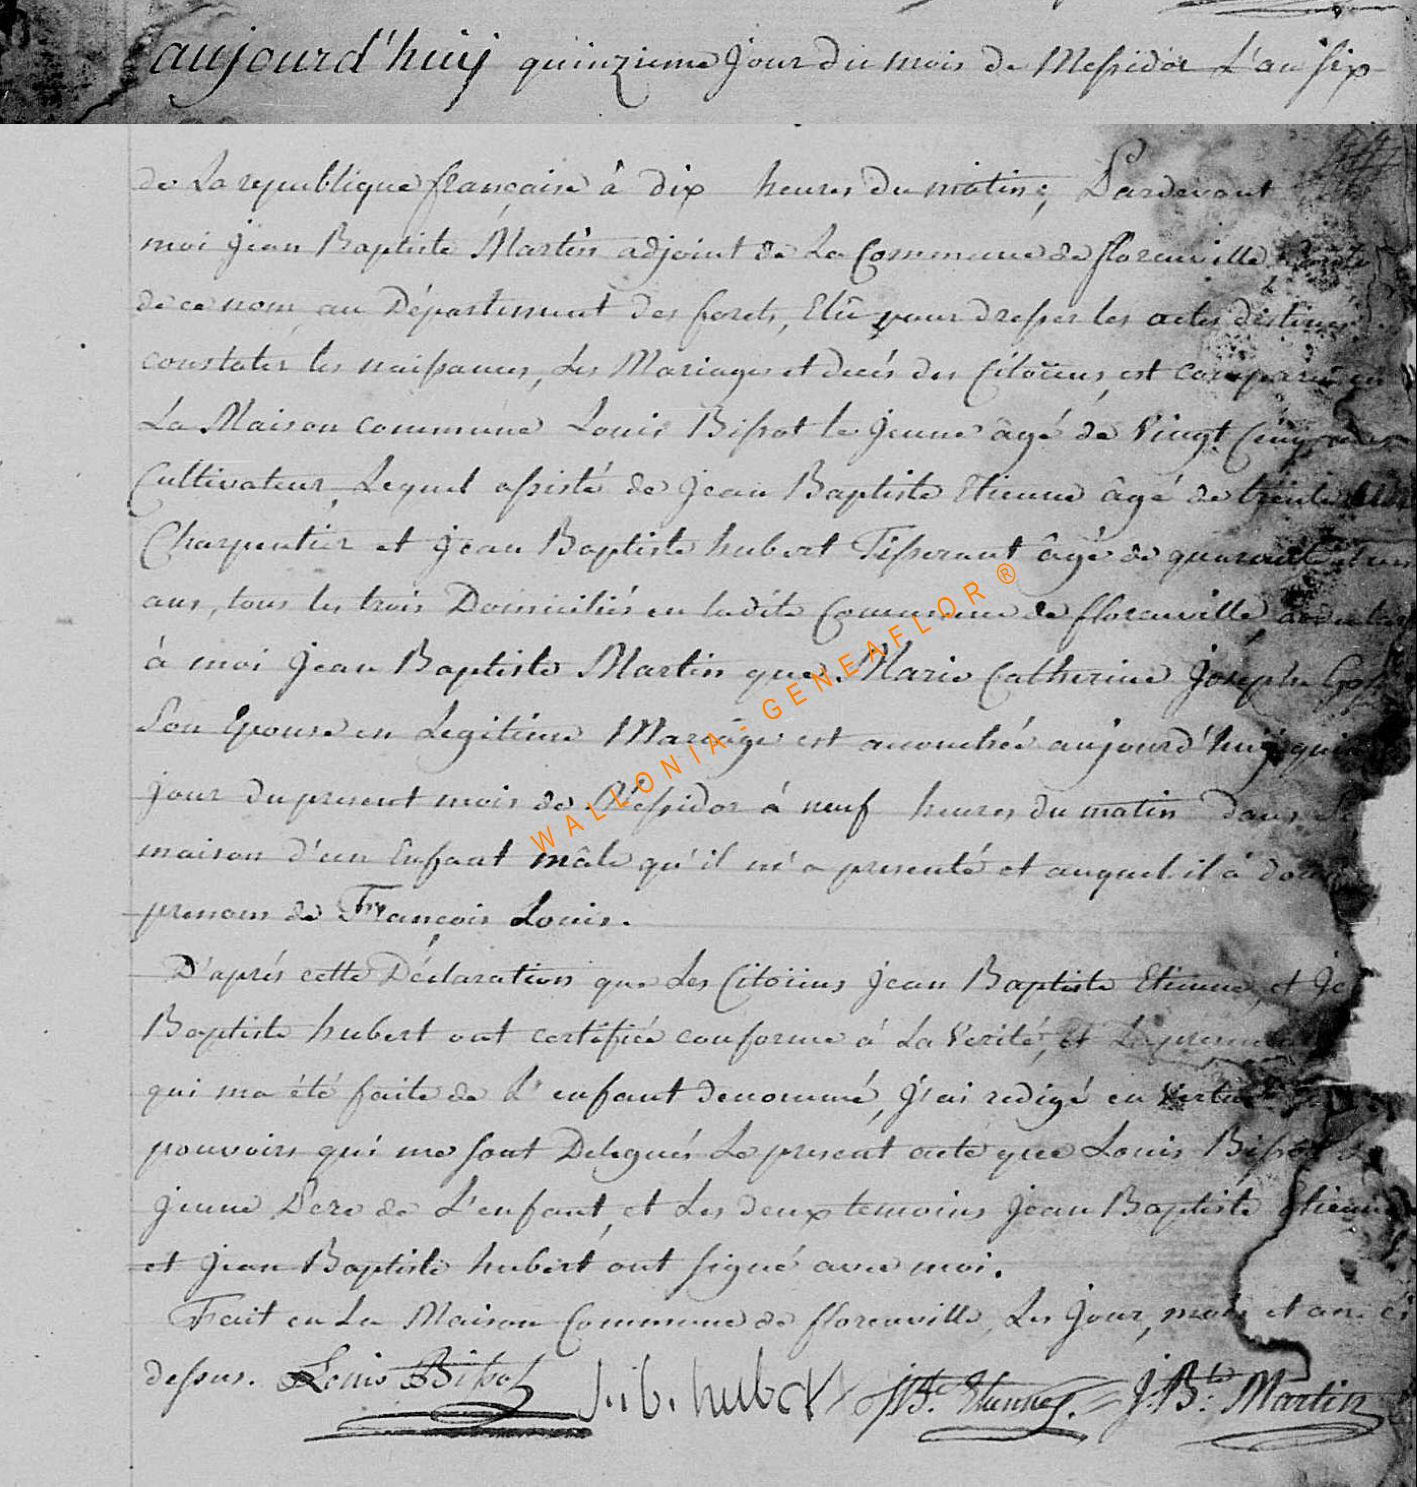 aujourd'huij quinzieme Jour du mois de Messidor L'an six
de La republique française à dix heures du matin, Pardevant
moi jean Baptiste Martin adjoint de La Commune de florenville
de ce nom au Département des forets, Elû pour dresser les actes destinés
constater les naissances, Les Mariages et decés des Citoïens, est comparu en
La Maison commune Louis Bissot le jeune âgé de Vingt Cinq
Cultivateur, Lequel assisté de jean Baptiste Etienne âgé de trente
Charpentier et jean Baptiste hubert Tisserant âgé de quarante et un
ans, tous les trois Domiciliés en ladite Commune de florenville
à moi jean Baptiste Martin que Marie Catherine joseph
Son Epouse en Legitime Mariage est accouchée aujourd'huij
jour du present mois de Messidor à neuf heures du matin dans
maison d'un Enfant mâle qu'il m'a presenté et auquel il à
prenoms de François Louis.
D'aprés cette Déclaration que Les Citoïens jean Baptiste Etienne, et
Baptiste hubert ont certifiée conforme à La Verité, et La
qui ma été faite de L'enfant denommé, j'ai redigé en Vertu
pouvoirs qui me sont Delegués Le present acte que Louis Bissot
jeune Pere de L'enfant, et Les deux temoins jean Baptiste Etienne
et jean Baptiste hubert ont signé avec moi.
Fait en La Maison Commune de florenville, Les jour, mois et an
dessus. Louis Bissot j. b. hubert JBte. Etienne. J. Bte. Martin
WALLONIA - GENEAFLOR ®